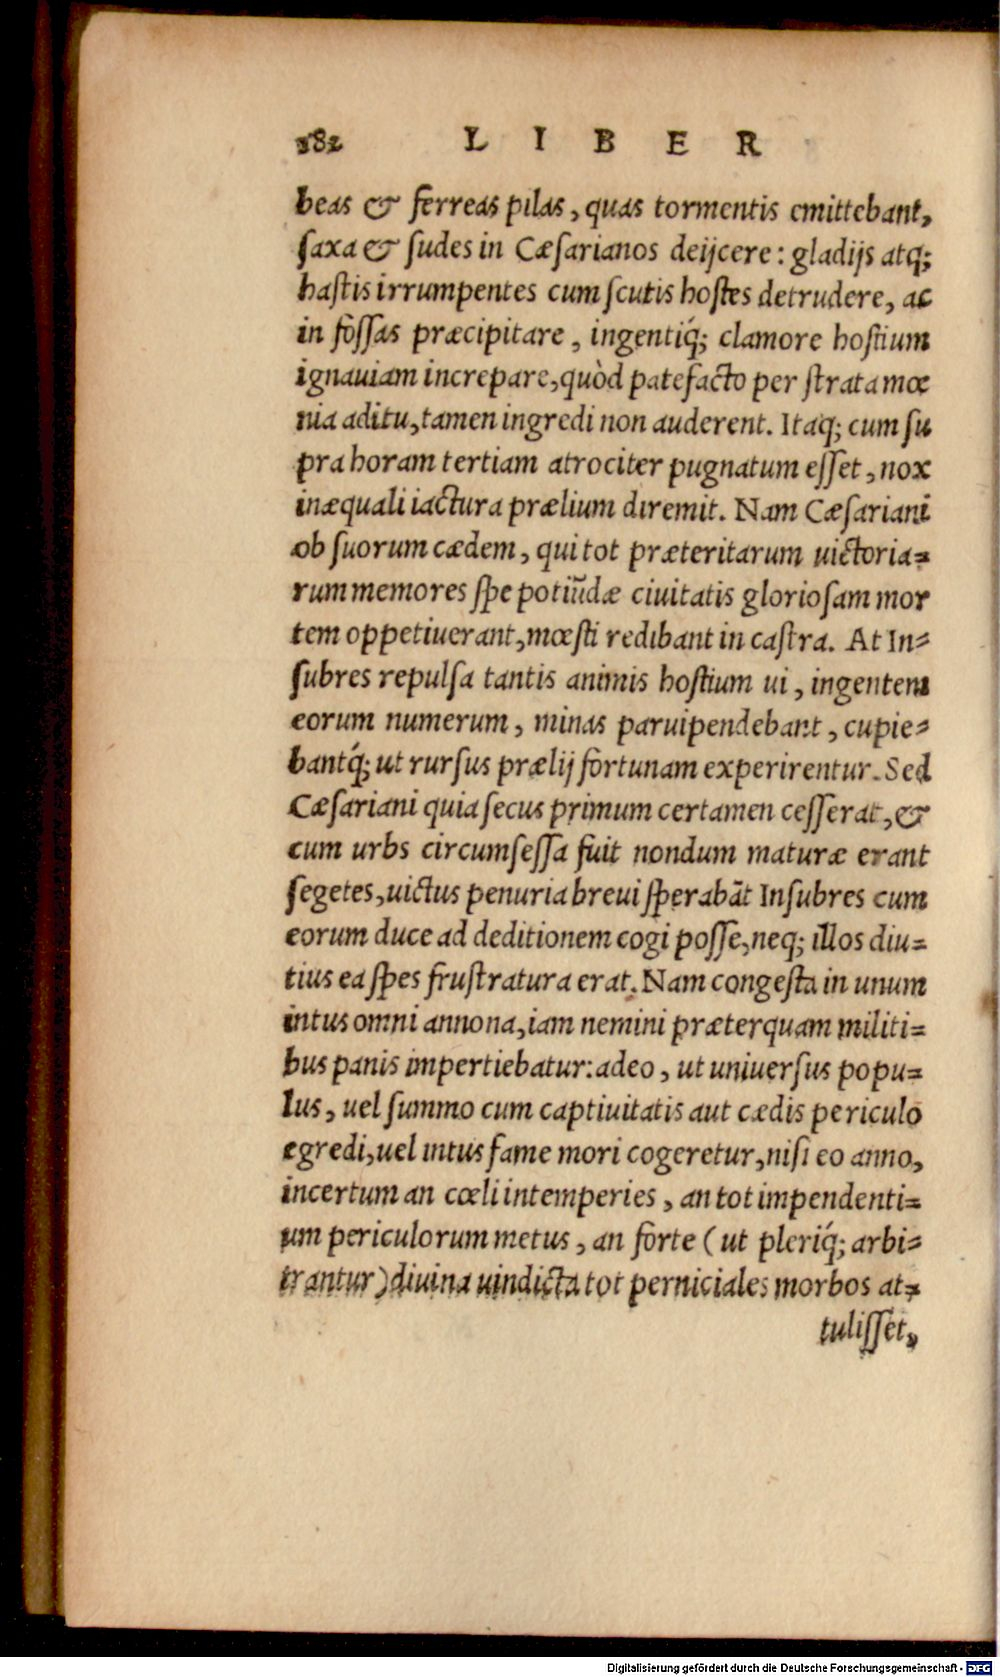 182 LIBER
beas & ferreas pilas, quas tormentis emittebant,
ſaxa & ſudes in Cæſarianos deijcere: gladijs atq;
haſtis irrumpentes cum ſcutis hoſtes detrudere, ac
in foſſas præcipitare, ingentiq́; clamore hoſtium
ignauiam increpare, quòd patefacto per ſtrata mœ
nia aditu, tamen ingredi non auderent. Itaq; cum ſu
pra horam tertiam atrociter pugnatum eſſet, nox
inæquali iactura prælium diremit. Nam Cæſariani
ob ſuorum cædem, qui tot præteritarum uictoria=
rum memores ſpe potiũdæ ciuitatis glorioſam mor
tem oppetiuerant, mœſti redibant in caſtra. At In=
ſubres repulſa tantis animis hoſtium ui, ingentem
eorum numerum, minas paruipendebant, cupie=
bantq́; ut rurſus prælij fortunam experirentur. Sed
Cæſariani quia ſecus primum certamen ceſſerat, &
cum urbs circumſeſſa fuit nondum maturæ erant
ſegetes, uictus penuria breui ſperabãt Inſubres cum
eorum duce ad deditionem cogi poſſe, neq; illos diu=
tius ea ſpes fruſtratura erat. Nam congeſta in unum
intus omni annona, iam nemini præterquam militi=
bus panis impertiebatur: adeo, ut uniuerſus popu=
lus, uel ſummo cum captiuitatis aut cædis periculo
egredi, uel intus fame mori cogeretur, niſi eo anno,
incertum an cœli intemperies, an tot impendenti=
um periculorum metus, an forte (ut pleriq́; arbi=
trantur) diuina uindicta tot perniciales morbos at=
tuliſſet,
Digitalisierung gefördert durch die Deutsche Forschungsgemeinschaft - DFG